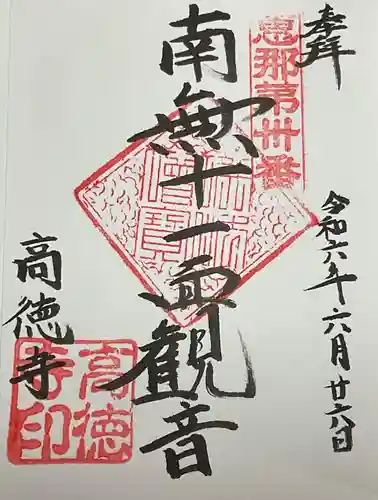 奉拝
恵那第卅番
令和六年六月廿六日
南無十一面観音
高徳寺
高徳寺印